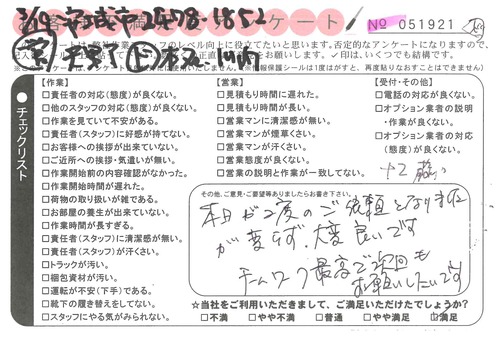 3/3 安城市
ケート
№ 051921
ケートは
のレベル向上に役立てたいと思います。否定的なアンケートになりますので、
お願いします。✓印は、いくつでも結構です。
使用いたしません。個人情報保護シールは1度がすと、再度貼りなおすことはできません)
チェックリスト
【作業】
□責任者の対応(態度)が良くない。
□他のスタッフの対応(態度)が良くない。
□作業を見ていて不安がある。
□責任者(スタッフ)に好感が持てない。
□お客様への挨拶が出来ていない。
□ご近所への挨拶・気遣いが無い。
□作業開始前の内容確認がなかった。
□作業開始時間が遅れた。
□荷物の取り扱いが雑である。
□お部屋の養生が出来ていない。
□作業時間が長すぎる。
□責任者(スタッフ)に清潔感が無い。
□責任者(スタッフ)が汗くさい。
□トラックが汚い。
□梱包資材が汚い。
□運転が不安(下手)である。
□靴下の履き替えをしてない。
□スタッフにやる気がみられない。
【営業】
□見積もり時間に遅れた。
□見積もり時間が長い。
□営業マンに清潔感が無い。
□営業マンが煙草くさい。
□営業マンが汗くさい。
□営業態度が良くない。
□営業の説明と作業が一致してない。
【受付・その他】
□電話の対応が良くない。
□オプション業者の説明
・作業が良くない。
□オプション業者の対応
(態度)が良くない。
その他、ご意見・ご要望等ありましたらお書き下さい。
本日が2度のご依頼となりますが
が変らず、大変良いです
チームワーク最高で次回も
お願いしたいです
☆当社をご利用いただきまして、ご満足いただけたでしょうか?
□不満 □やや不満 □普通 □やや満足 ☑満足
株式会社